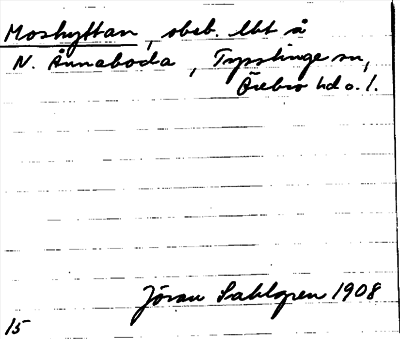 Moshyttan, obeb. lht å
N. Ånnaboda, Tysslinge sn,
Örebro hd o. l.
Jöran Sahlgren 1908
15